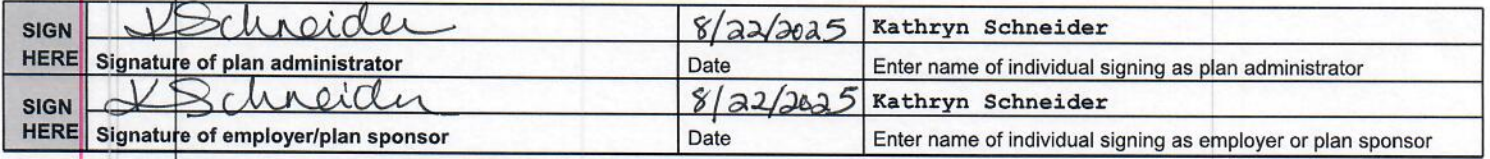 SIGN HERE KSchneider 8/22/2025 Kathryn Schneider
Signature of plan administrator Date Enter name of individual signing as plan administrator
SIGN HERE KSchneider 8/22/2025 Kathryn Schneider
Signature of employer/plan sponsor Date Enter name of individual signing as employer or plan sponsor